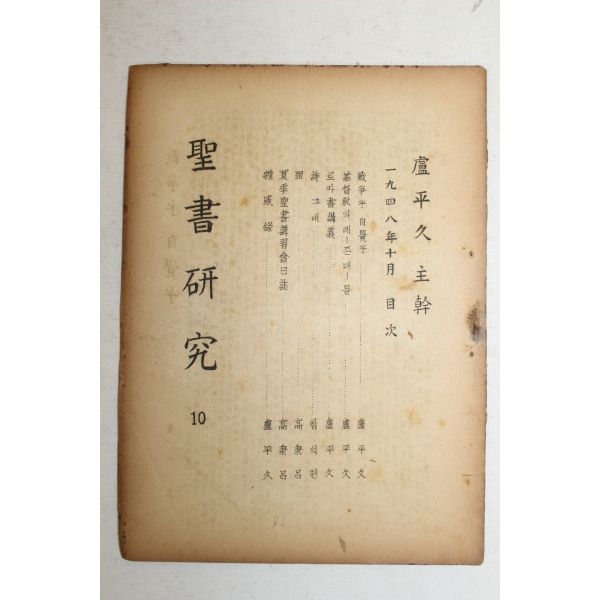 盧平久 主幹
一九四八年十月 目次
戰爭乎 自覺乎 盧平久
基督敎의 레ー존떼ー틀 盧平久
로마書講義 盧平久
詩 그대 함석헌
罪 高聚呂
夏季聖書講習會日誌 高聚呂
雜感錄 盧平久
聖書研究
10